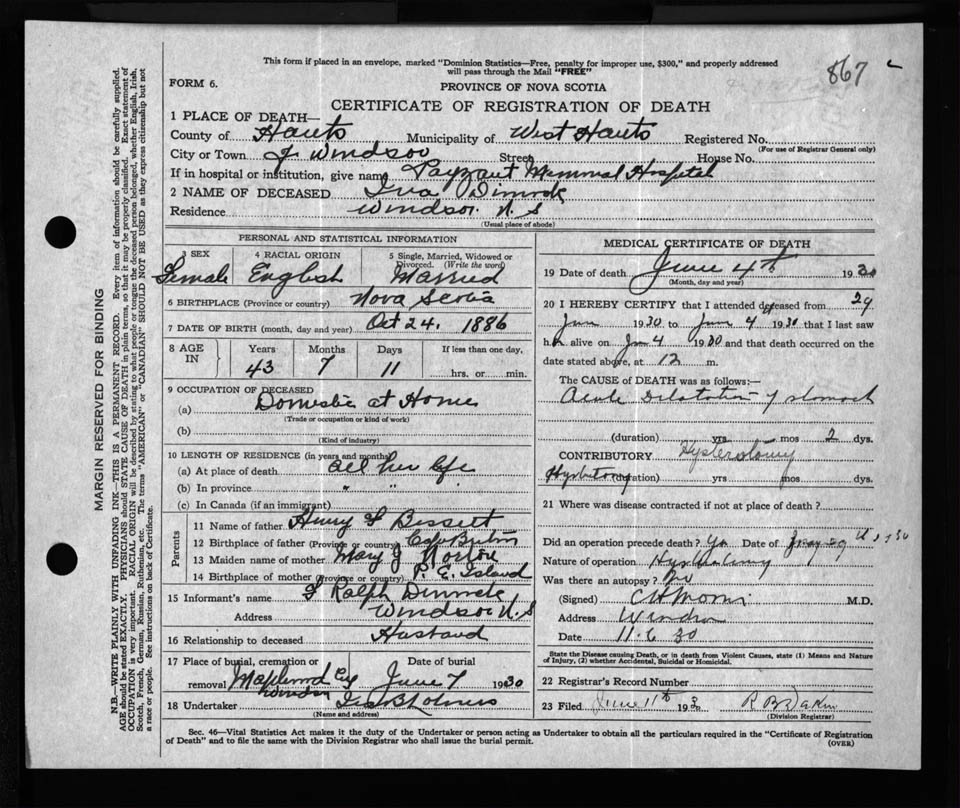 This form if placed in an envelope, marked "Dominion Statistics—Free, penalty for improper use, $300," and properly addressed
will pass through the Mail "FREE"
867
FORM 6.
PROVINCE OF NOVA SCOTIA
CERTIFICATE OF REGISTRATION OF DEATH
1 PLACE OF DEATH—
County of Hants Municipality of West Hants Registered No.
(For use of Registrar General only)
City or Town Windsor Street House No.
If in hospital or institution, give name Payzant Memorial Hospital
2 NAME OF DECEASED Iva Dimock
Residence Windsor N.S
(Usual place of abode)
PERSONAL AND STATISTICAL INFORMATION
3 SEX Female
4 RACIAL ORIGIN English
5 Single, Married, Widowed or Divorced. (Write the word) Married
6 BIRTHPLACE (Province or country) Nova Scotia
7 DATE OF BIRTH (month, day and year) Oct 24. 1886
8 AGE IN Years 43 Months 7 Days 11 If less than one day, hrs. or min.
9 OCCUPATION OF DECEASED
(a) Domestic at Home
(Trade or occupation or kind of work)
(b)
(Kind of industry)
10 LENGTH OF RESIDENCE (in years and months)
(a) At place of death all her life
(b) In province " "
(c) In Canada (if an immigrant)
Parents
11 Name of father Henry Bissett
12 Birthplace of father (Province or country) Cape Breton
13 Maiden name of mother Mary J
14 Birthplace of mother (Province or country) P. E. Island
15 Informant's name Ralph Dimock
Address Windsor N.S
16 Relationship to deceased Husband
17 Place of burial, cremation or removal Maplewood Windsor
Date of burial June 7 1930
18 Undertaker
(Name and address)
MEDICAL CERTIFICATE OF DEATH
19 Date of death June 4th 1930
(Month, day and year)
20 I HEREBY CERTIFY that I attended deceased from 29
1930 to June 4 1930 that I last saw
her alive on June 4 1930 and that death occurred on the
date stated above, at 12 m.
The CAUSE OF DEATH was as follows:—
Acute Dilatation of stomach
(duration) yrs mos 2 dys.
CONTRIBUTORY
(duration) yrs mos dys.
21 Where was disease contracted if not at place of death?
Did an operation precede death? Yes Date of May 29
Nature of operation
Was there an autopsy? No
(Signed) M.D.
Address Windsor
Date 11.6.30
State the Disease causing Death, or in death from Violent Causes, state (1) Means and Nature
of Injury, (2) whether Accidental, Suicidal or Homicidal.
22 Registrar's Record Number
23 Filed June 11th 193
(Division Registrar)
Sec. 46—Vital Statistics Act makes it the duty of the Undertaker or person acting as Undertaker to obtain all the particulars required in the "Certificate of Registration
of Death" and to file the same with the Division Registrar who shall issue the burial permit.
(OVER)
MARGIN RESERVED FOR BINDING
N.B.—WRITE PLAINLY WITH UNFADING INK—THIS IS A PERMANENT RECORD. Every item of information should be carefully supplied.
AGE should be stated EXACTLY. PHYSICIANS should STATE CAUSE OF DEATH in plain terms, so that it may be properly classified. Exact statement of
OCCUPATION is very important. RACIAL ORIGIN will be described by stating to what people or tongue the deceased person belonged, whether English, Irish,
Scotch, French, German, Russian, Ruthenian, etc. The terms "AMERICAN" or "CANADIAN" SHOULD NOT BE USED as they express citizenship but not
a race or people. See instructions on back of Certificate.